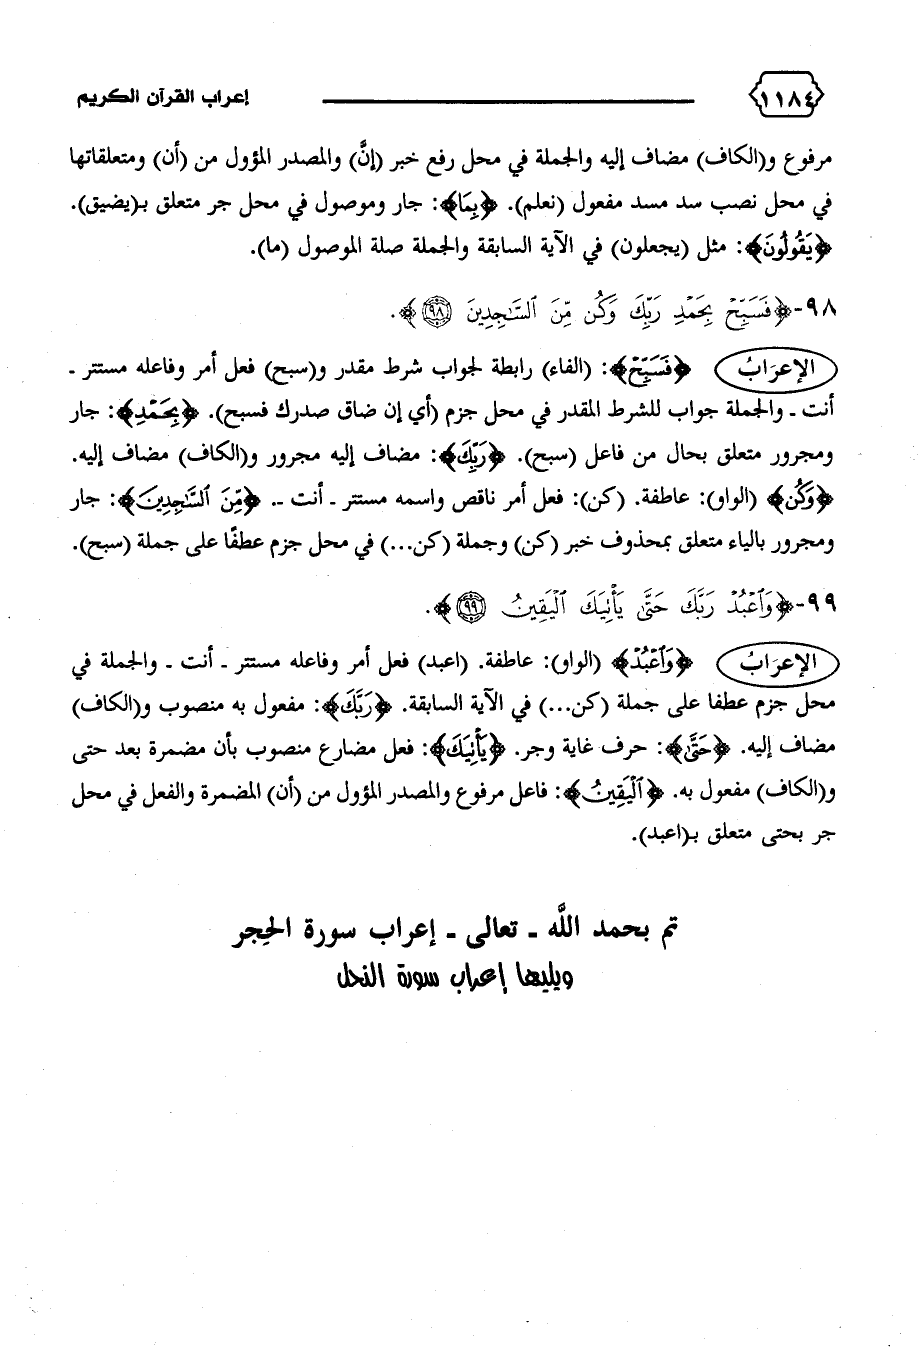 ١١٨٤ إعراب القرآن الكريم
مرفوع و(الكاف) مضاف إليه والجملة في محل رفع خبر (إنَّ) والمصدر المؤول من (أن) ومتعلقاتها
في محل نصب سد مسد مفعول (نعلم). ﴿بِمَا﴾: جار وموصول في محل جر متعلق بـ(يضيق).
﴿يَقُولُونَ﴾: مثل (يجعلون) في الآية السابقة والجملة صلة الموصول (ما).
٩٨-﴿فَسَبِّحْ بِحَمْدِ رَبِّكَ وَكُن مِّنَ ٱلسَّٰجِدِينَ ٩٨﴾.
الإعرَابُ ﴿فَسَبِّحْ﴾: (الفاء) رابطة لجواب شرط مقدر و(سبح) فعل أمر وفاعله مستتر ـ
أنت ـ والجملة جواب للشرط المقدر في محل جزم (أي إن ضاق صدرك فسبح). ﴿بِحَمْدِ﴾: جار
ومجرور متعلق بحال من فاعل (سبح). ﴿رَبِّكَ﴾: مضاف إليه مجرور و(الكاف) مضاف إليه.
﴿وَكُن﴾ (الواو): عاطفة. (كن): فعل أمر ناقص واسمه مستتر ـ أنت ـ. ﴿مِّنَ ٱلسَّٰجِدِينَ﴾: جار
ومجرور بالياء متعلق بمحذوف خبر (كن) وجملة (كن...) في محل جزم عطفًا على جملة (سبح).
٩٩-﴿وَٱعْبُدْ رَبَّكَ حَتَّىٰ يَأْتِيَكَ ٱلْيَقِينُ ٩٩﴾.
الإعرَابُ ﴿وَٱعْبُدْ﴾ (الواو): عاطفة. (اعبد) فعل أمر وفاعله مستتر ـ أنت ـ والجملة في
محل جزم عطفا على جملة (كن...) في الآية السابقة. ﴿رَبَّكَ﴾: مفعول به منصوب و(الكاف)
مضاف إليه. ﴿حَتَّىٰ﴾: حرف غاية وجر. ﴿يَأْتِيَكَ﴾: فعل مضارع منصوب بأن مضمرة بعد حتى
و(الكاف) مفعول به. ﴿ٱلْيَقِينُ﴾: فاعل مرفوع والمصدر المؤول من (أن) المضمرة والفعل في محل
جر بحتى متعلق بـ(اعبد).
تم بحمد اللَّه ـ تعالى ـ إعراب سورة الحِجر
ويليها إعراب سورة النحل